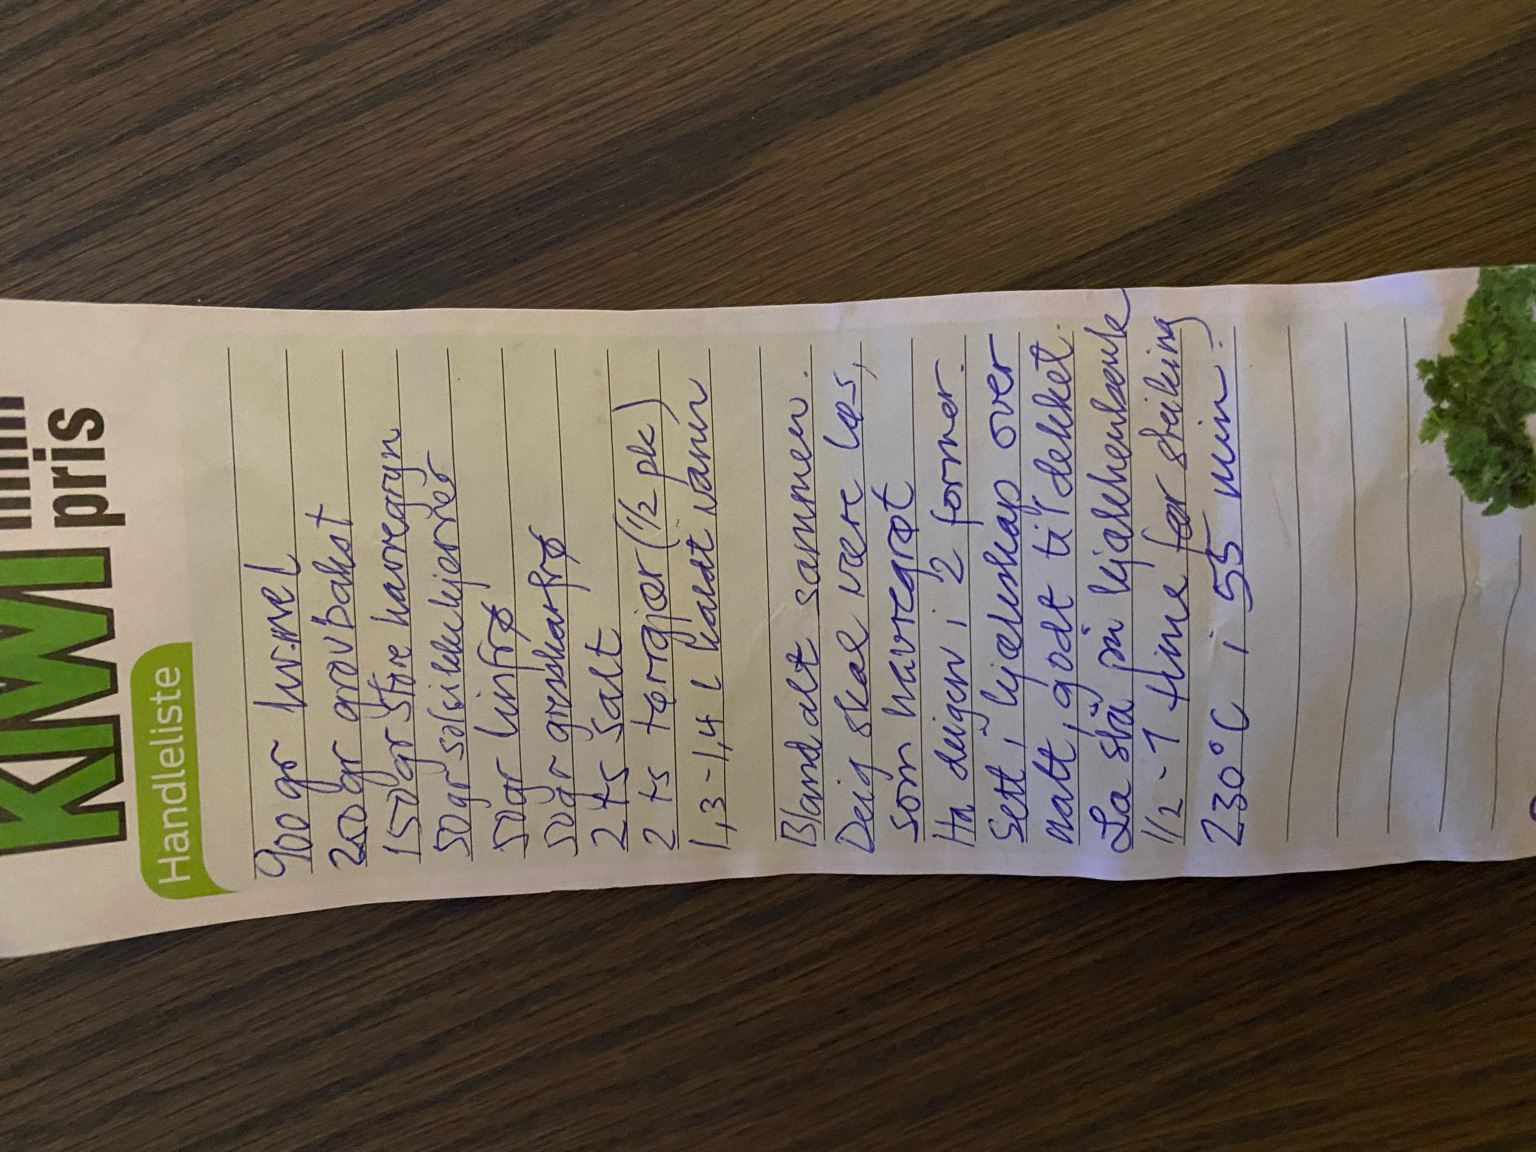 KIWI mini
pris
Handleliste
900 gr hv.mel
200 gr grovbakst
150 gr store havregryn
50 gr solsikkekjerner
50 gr linfrø
50 gr gresskarfrø
2 ts salt
2 ts tørrgjær (1/2 pk)
1,3-1,4 l kaldt vann
Bland alt sammen.
Deig skal være løs,
som havregrøt
Ha deigen i 2 former.
Sett i kjøleskap over
natt, godt tildekket.
La stå på kjøkkenbenk
1/2 - 1 time før steiking
230°C i 55 min.